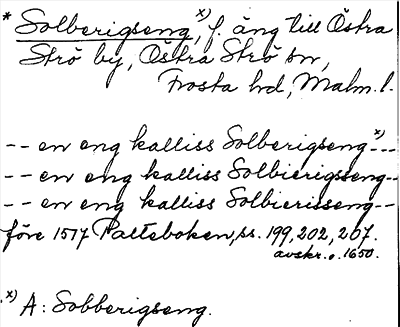 * Solberigseng,ˣ⁾ f. äng till Östra
Strö by, Östra Strö sn,
Frosta hd, Malm. l.
-- en eng kalliss Solberigsengˣ⁾---
-- en eng kalliss Solbierigsseng--
-- en eng kalliss Solbierisseng--
före 1517 Palteboken, ss. 199, 202, 207.
avskr. o. 1650.
ˣ⁾ A: Sobberigseng.